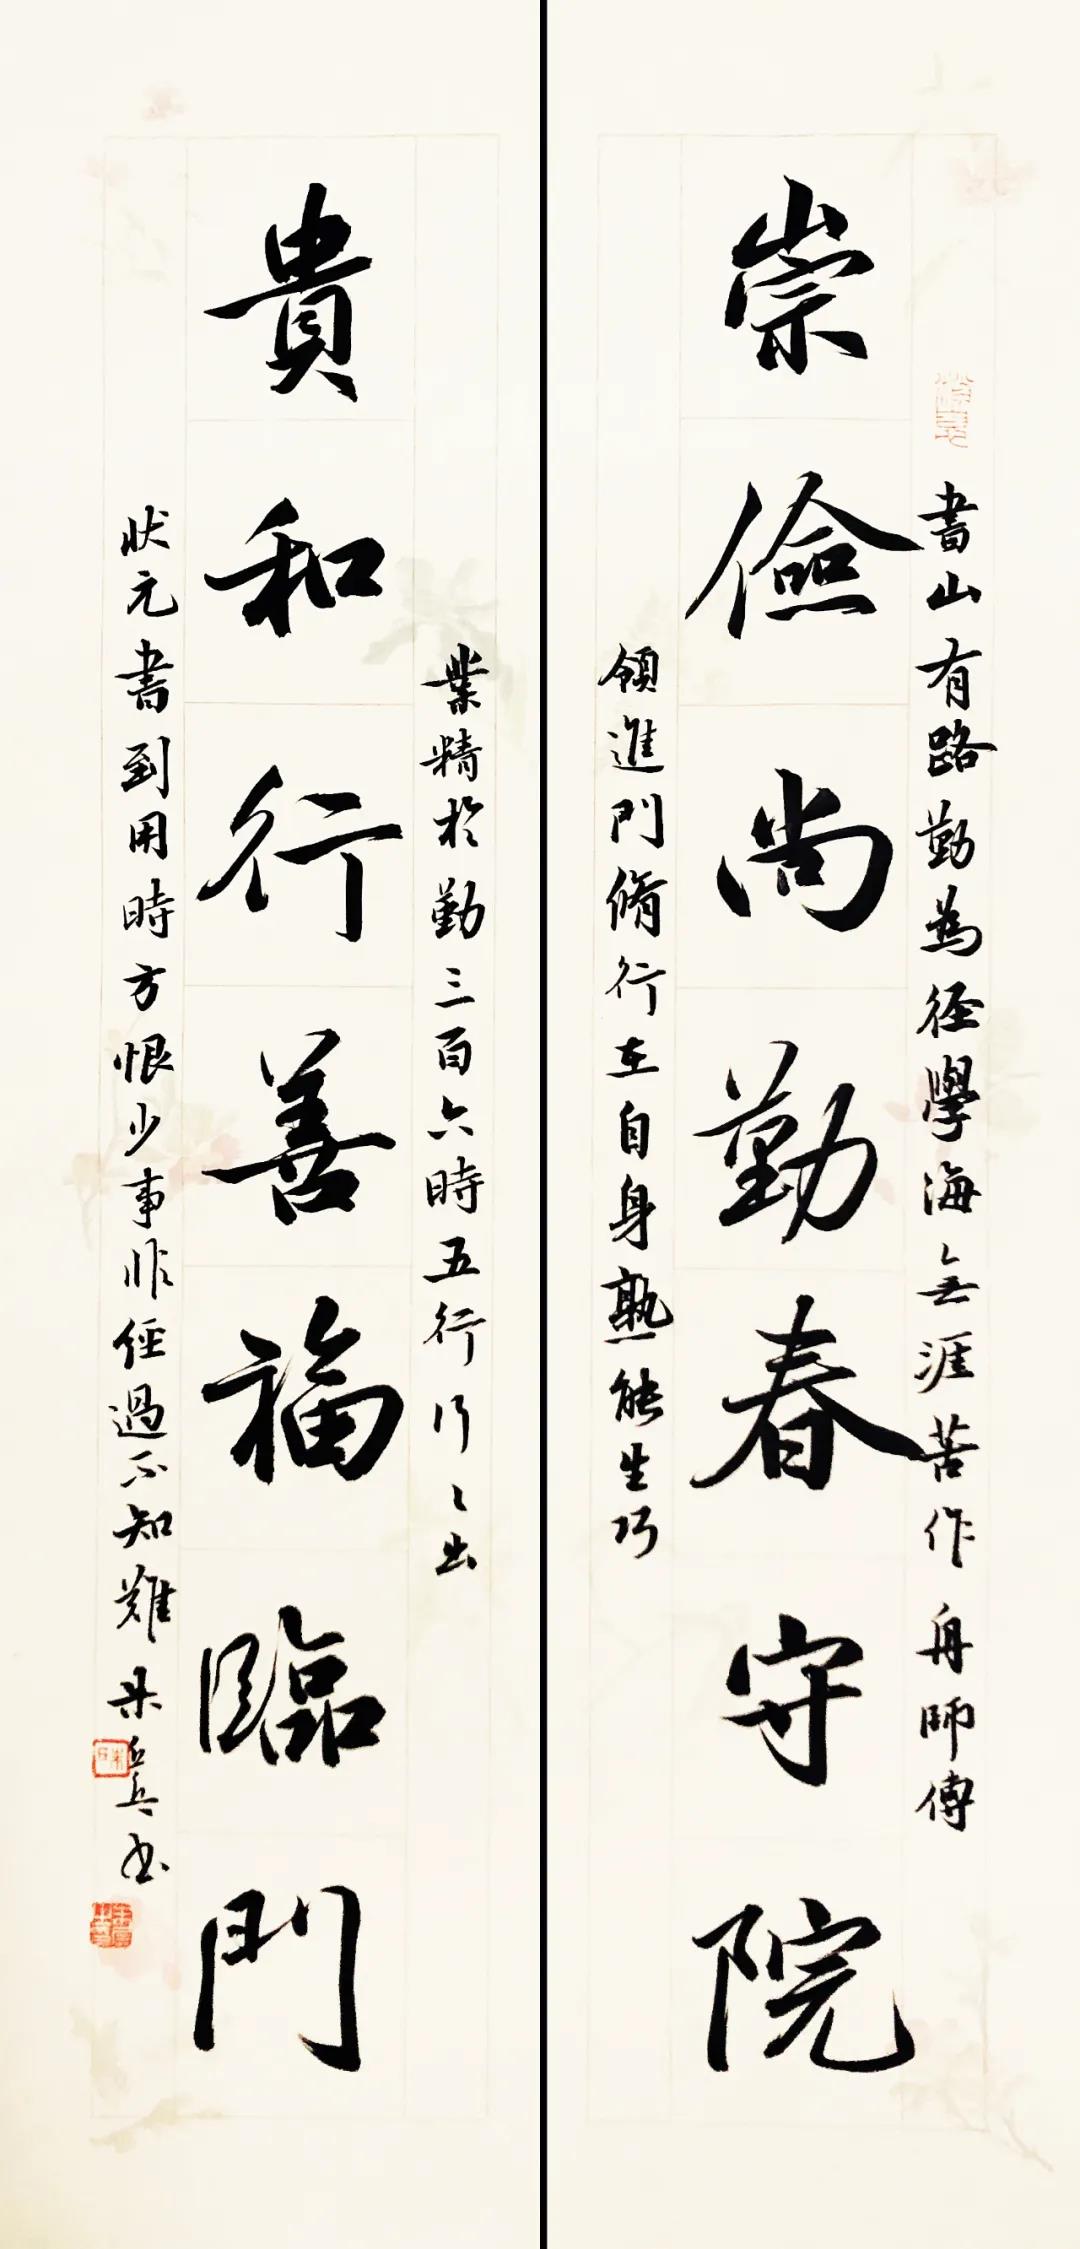 崇儉尚勤春守院
書山有路勤為徑學海無涯苦作舟師傅
領進門脩行在自身熟能生巧
貴和行善福臨門
業精於勤三百六時五行行〻出
狀元書到用時方恨少事非經過不知難朱岳兵书